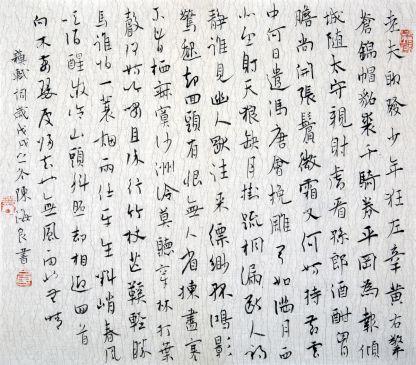 老夫聊發少年狂左牽黃右擎
蒼錦帽貂裘千騎卷平岡為報傾
城隨太守親射虎看孫郎酒酣胸
膽尚開張鬢微霜又何妨持節雲
中何日遣馮唐會挽雕弓如滿月西
北望射天狼缺月掛疏桐漏斷人初
靜誰見幽人獨往來縹緲孤鴻影
驚起卻回頭有恨無人省揀盡寒
不肯栖寂寞沙洲冷莫聽穿林打葉
聲何妨吟嘯且徐行竹杖芒鞋輕勝
馬誰怕一蓑煙雨任平生料峭春風
吹酒醒微冷山頭斜照卻相迎回首
向來蕭瑟處歸去也無風雨也無晴
蘇軾詞歲戊戌之冬陳海良書